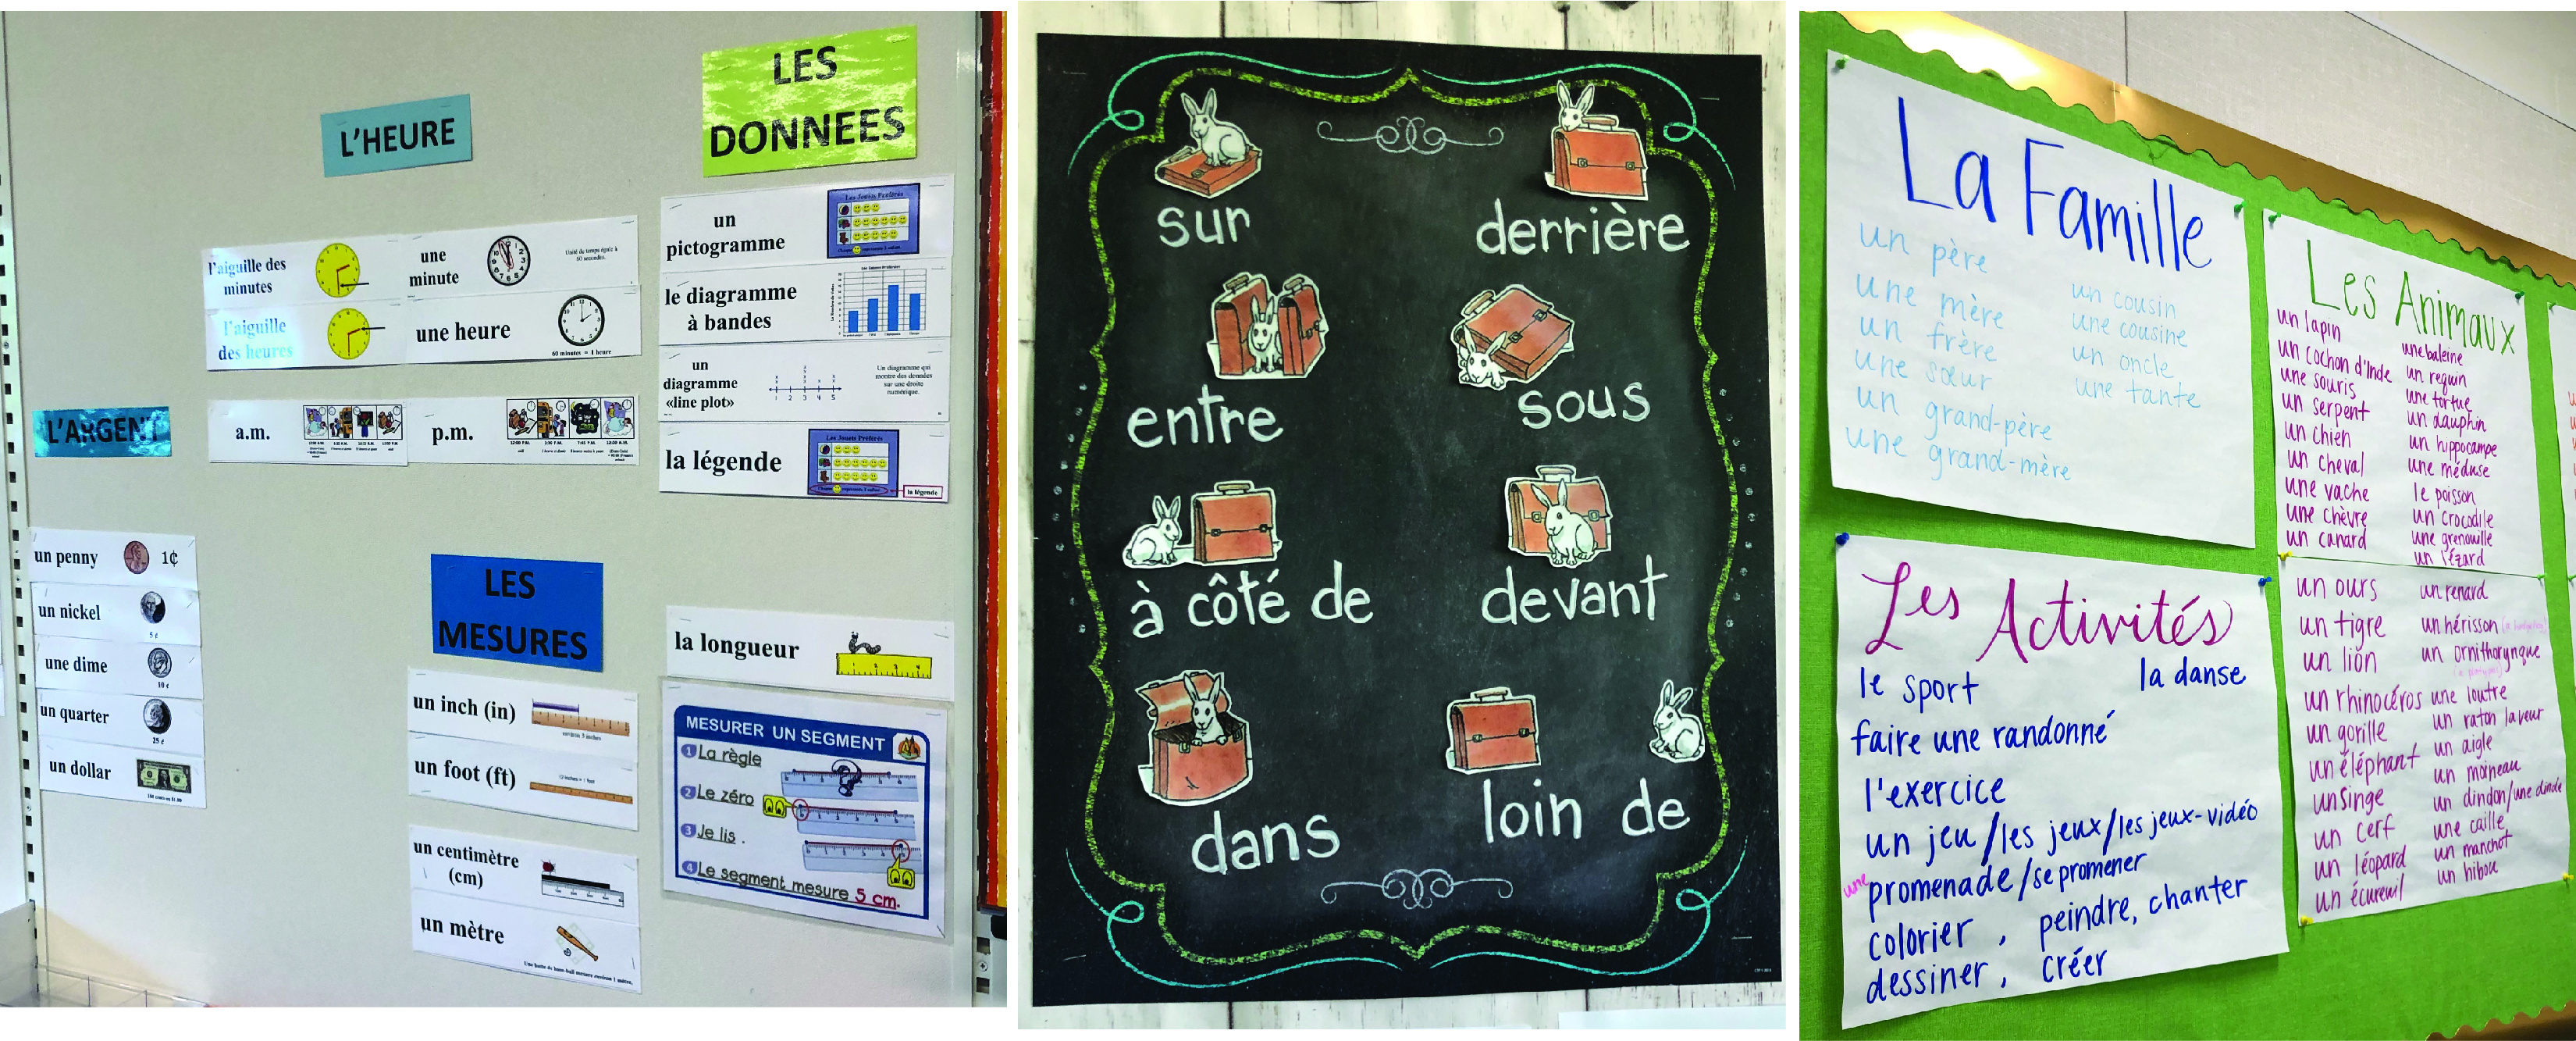 LES
DONNEES
L'HEURE
un
pictogramme
Les Jouets Préférés
l'aiguille des
minutes
une
minute
Unité de temps égale à
60 secondes.
le diagramme
à bandes
l'aiguille
des heures
une heure
60 minutes = 1 heure
un
diagramme
«line plot»
1 2 3 4 5
Un diagramme qui
montre des données
sur une droite
numérique.
L'ARGENT
a.m.
p.m.
la légende
Les Jouets Préférés
la légende
un penny 1¢
un nickel
5 ¢
une dime
10 ¢
un quarter
25 ¢
un dollar
LES
MESURES
la longueur
un inch (in)
un foot (ft)
12 inches = 1 foot
un centimètre
(cm)
un mètre
Une batte de base-ball mesure environ 1 mètre.
MESURER UN SEGMENT
1 La règle
2 Le zéro
3 Je lis .
4 Le segment mesure 5 cm.
sur
derrière
entre
sous
à côté de
devant
dans
loin de
La Famille
un père
une mère
un frère
une sœur
un grand-père
une grand-mère
un cousin
une cousine
un oncle
une tante
Les Activités
le sport
la danse
faire une randonné
l'exercice
un jeu/les jeux/les jeux-vidéo
une promenade/se promener
colorier , peindre, chanter
dessiner , créer
Les Animaux
un lapin
un cochon d'Inde
une souris
un serpent
un chien
un cheval
une vache
une chèvre
un canard
une baleine
un requin
une tortue
un dauphin
un hippocampe
une méduse
le poisson
un crocodile
une grenouille
un lézard
un ours
un tigre
un lion
un rhinocéros
un gorille
un éléphant
un singe
un cerf
un léopard
un écureuil
un renard
un hérisson
un ornithorynque
une loutre
un raton laveur
un aigle
un moineau
un dindon/une dinde
une caille
un manchot
un hibou